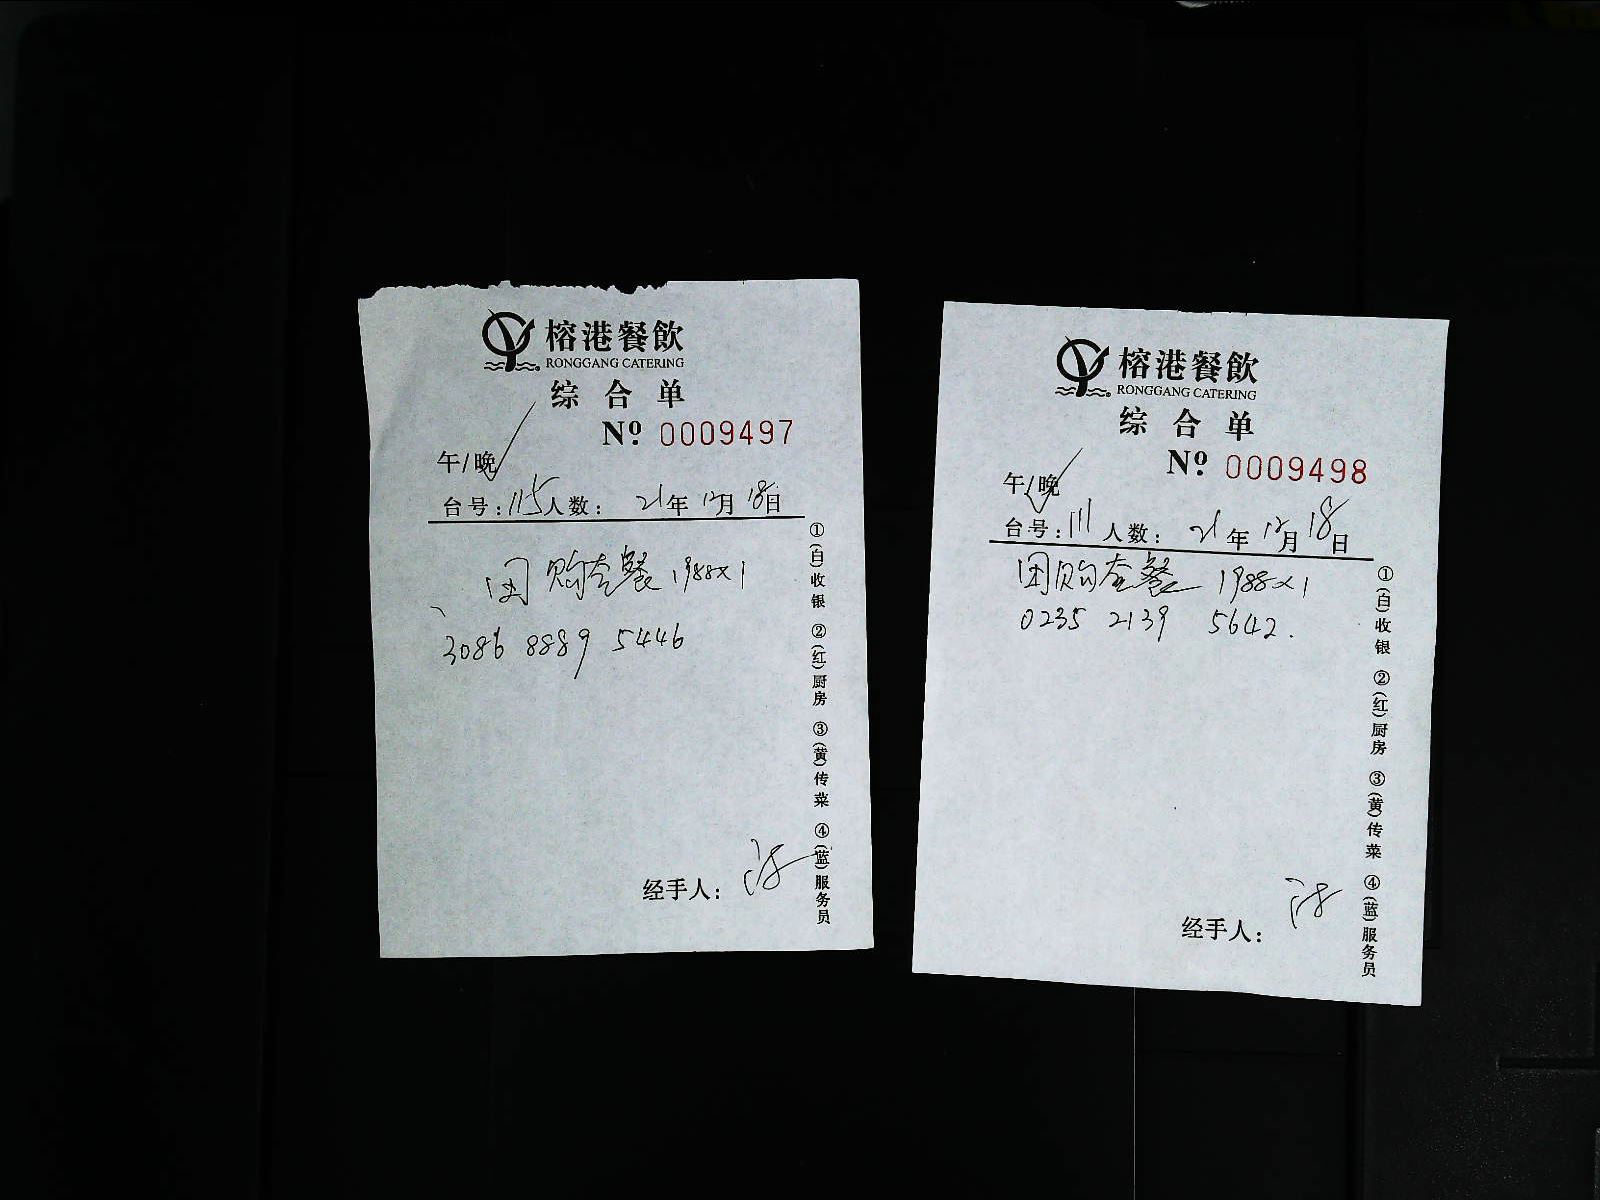 榕港餐飲
RONGGANG CATERING
综合单
Nº 0009497
午/晚
台号:115人数: 21年12月18日
团购套餐 1988×1
3086 8889 5446
经手人:
①(白)收银 ②(红)厨房 ③(黄)传菜 ④(蓝)服务员
榕港餐飲
RONGGANG CATERING
综合单
Nº 0009498
午/晚
台号:111人数: 21年12月18日
团购套餐 1988×1
0235 2139 5642.
经手人:
①(白)收银 ②(红)厨房 ③(黄)传菜 ④(蓝)服务员